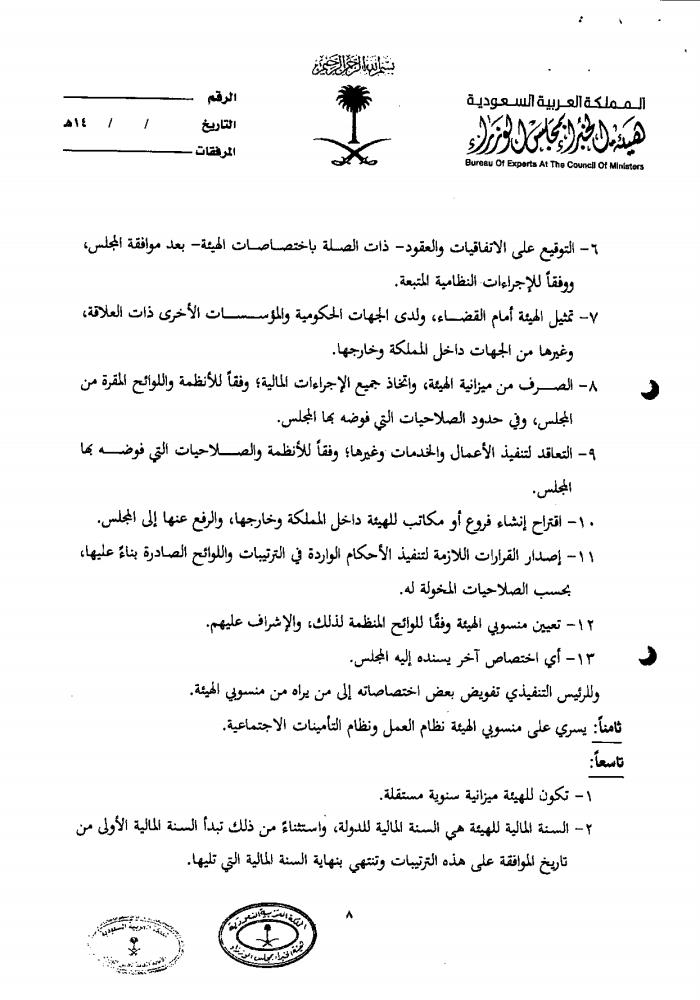 بسم الله الرحمن الرحيم
المملكة العربية السعودية
هيئة الخبراء بمجلس الوزراء
Bureau Of Experts At The Council Of Ministers
الرقم
التاريخ / / ١٤هـ
المرفقات
٦- التوقيع على الاتفاقيات والعقود- ذات الصلة باختصاصات الهيئة- بعد موافقة المجلس،
ووفقاً للإجراءات النظامية المتبعة.
٧- تمثيل الهيئة أمام القضاء، ولدى الجهات الحكومية والمؤسسات الأخرى ذات العلاقة،
وغيرها من الجهات داخل المملكة وخارجها.
٨- الصرف من ميزانية الهيئة، واتخاذ جميع الإجراءات المالية؛ وفقاً للأنظمة واللوائح المقرة من
المجلس، وفي حدود الصلاحيات التي فوضه بها المجلس.
٩- التعاقد لتنفيذ الأعمال والخدمات وغيرها؛ وفقاً للأنظمة والصلاحيات التي فوضه بها
المجلس.
١٠- اقتراح إنشاء فروع أو مكاتب للهيئة داخل المملكة وخارجها، والرفع عنها إلى المجلس.
١١- إصدار القرارات اللازمة لتنفيذ الأحكام الواردة في الترتيبات واللوائح الصادرة بناءً عليها،
بحسب الصلاحيات المخولة له.
١٢- تعيين منسوبي الهيئة وفقًا للوائح المنظمة لذلك، والإشراف عليهم.
١٣- أي اختصاص آخر يسنده إليه المجلس.
وللرئيس التنفيذي تفويض بعض اختصاصاته إلى من يراه من منسوبي الهيئة.
ثامناً: يسري على منسوبي الهيئة نظام العمل ونظام التأمينات الاجتماعية.
تاسعاً:
١- تكون للهيئة ميزانية سنوية مستقلة.
٢- السنة المالية للهيئة هي السنة المالية للدولة، واستثناءً من ذلك تبدأ السنة المالية الأولى من
تاريخ الموافقة على هذه الترتيبات وتنتهي بنهاية السنة المالية التي تليها.
٨
المملكة العربية السعودية
هيئة الخبراء بمجلس الوزراء
المملكة العربية السعودية